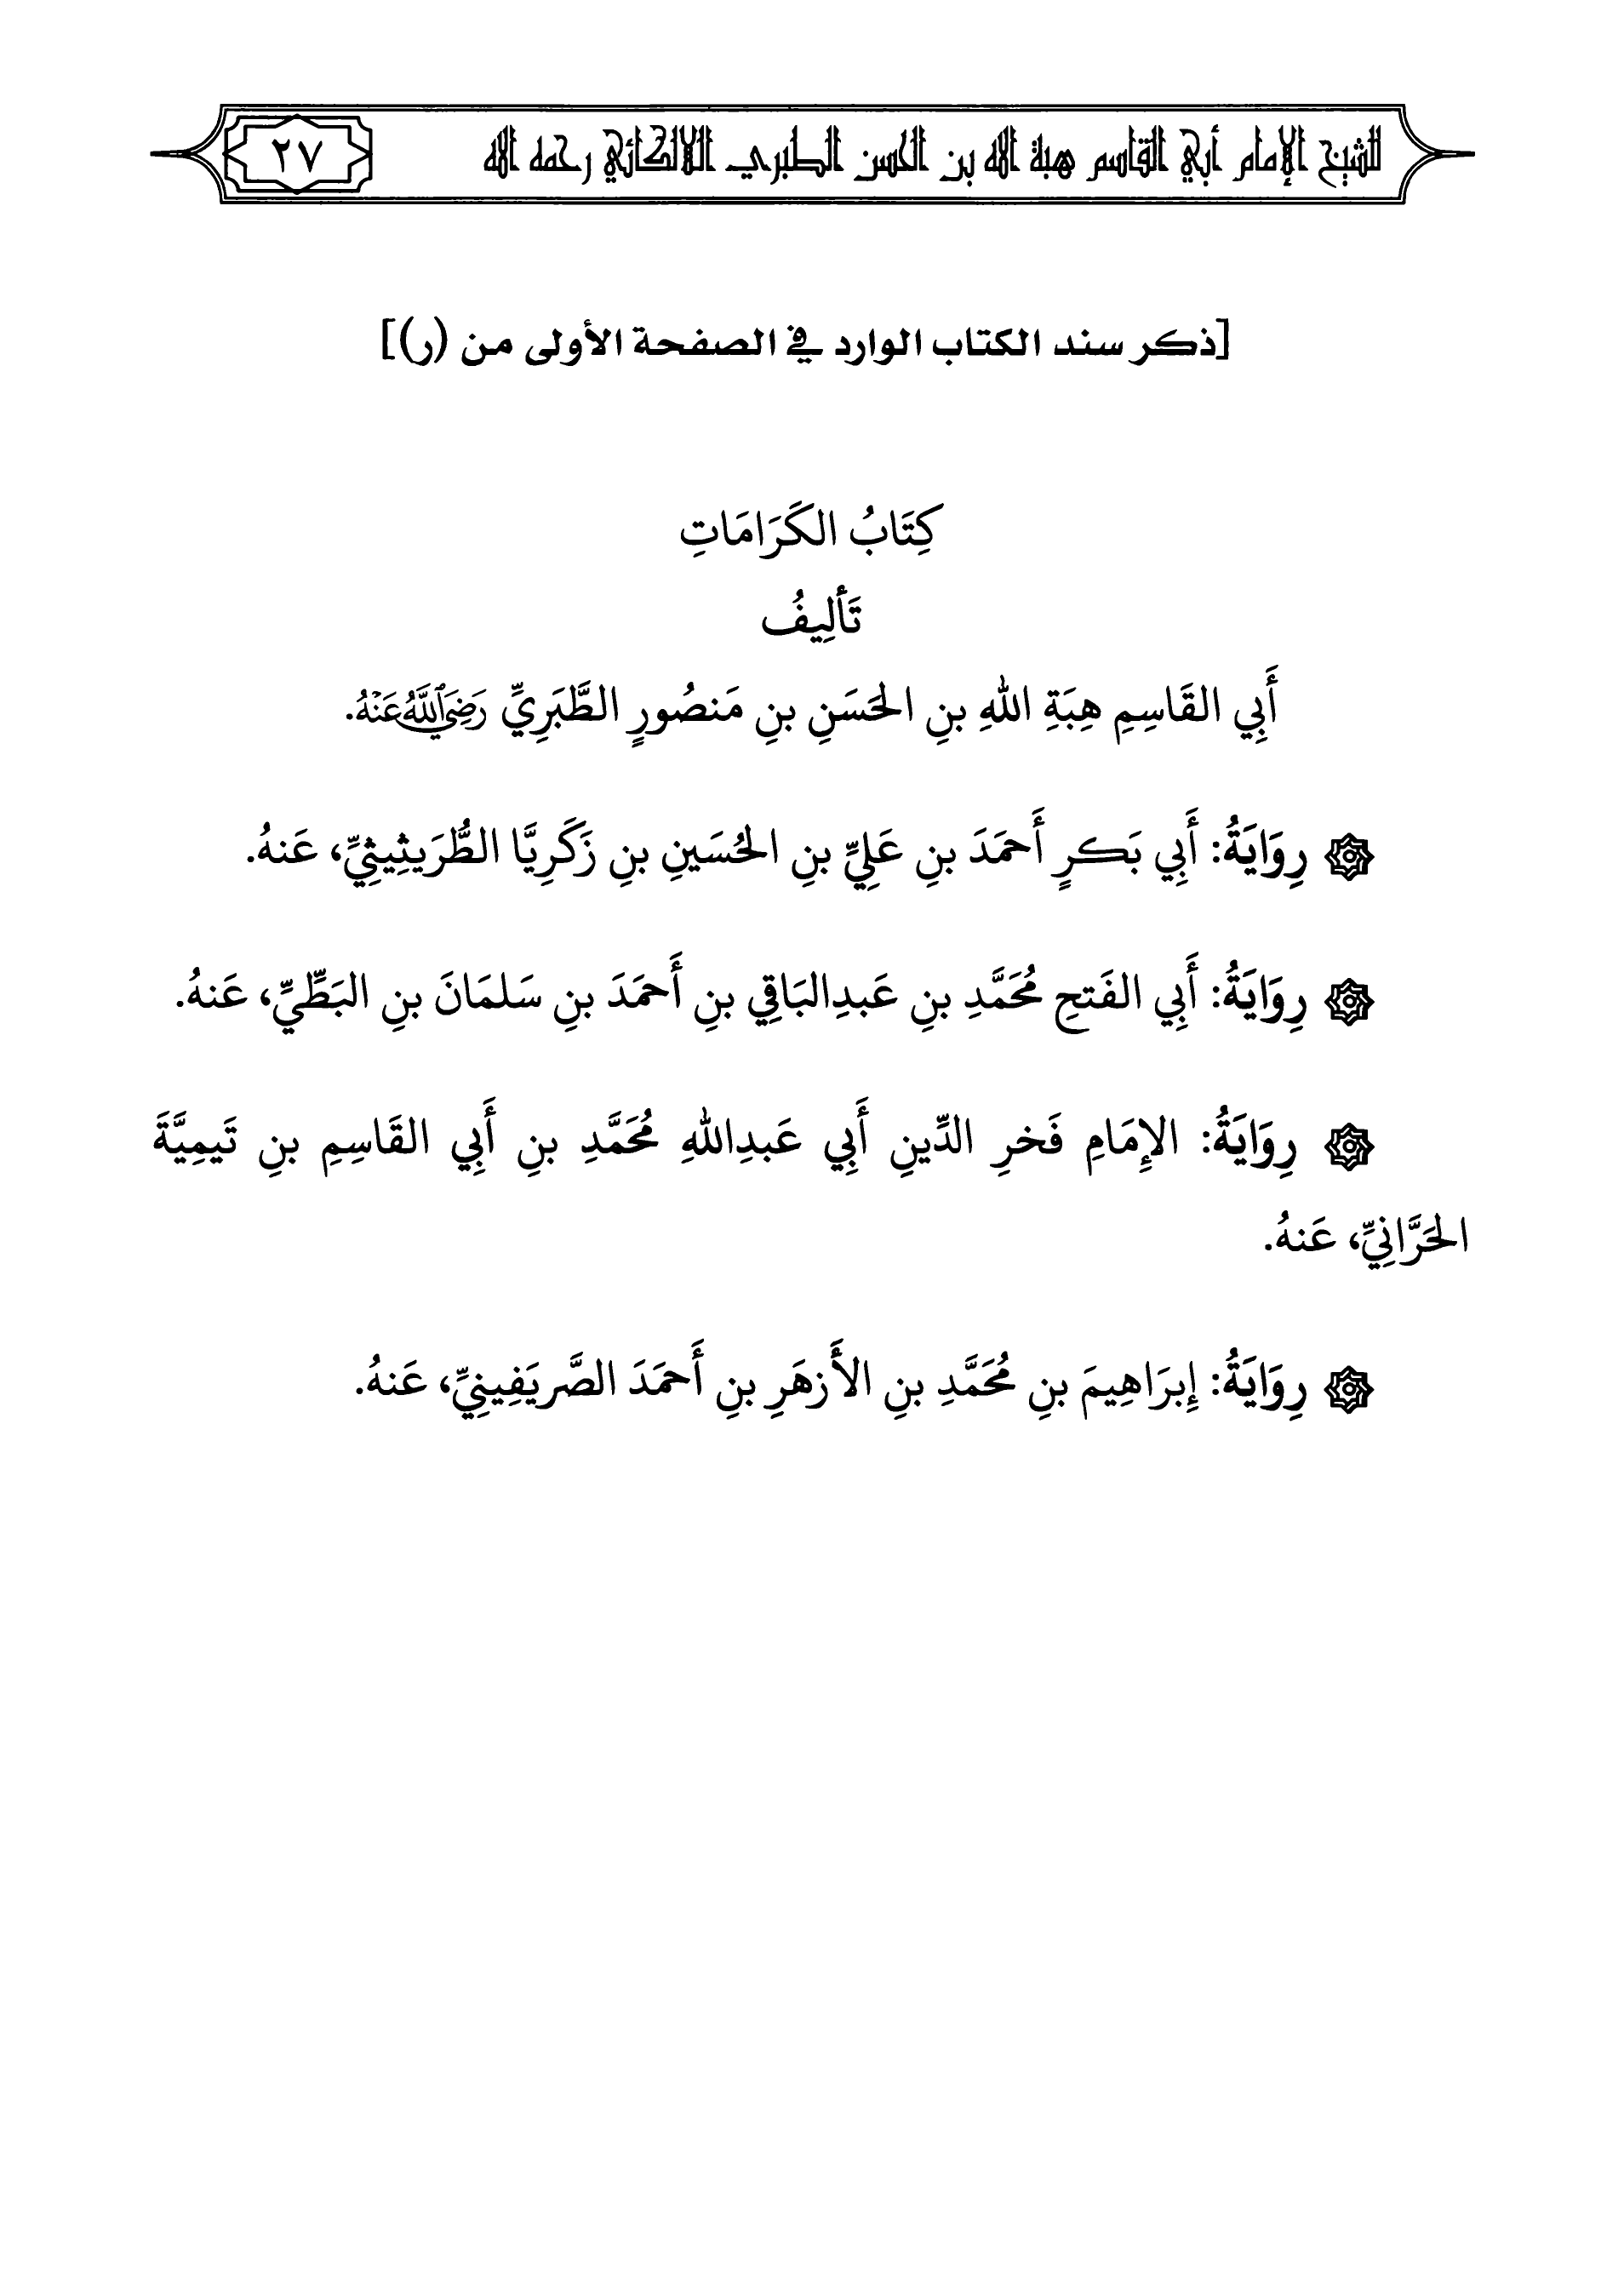 للشيخ الإمام أبي القاسم هبة الله بن الحسن الطبري اللالكائي رحمه الله ٢٧
[ذكر سند الكتاب الوارد في الصفحة الأولى من (ر)]
كِتَابُ الكَرَامَاتِ
تَألِيفُ
أَبِي القَاسِمِ هِبَةِ اللهِ بنِ الحَسَنِ بنِ مَنصُورٍ الطَّبَرِيِّ رَضِيَ اللَّهُ عَنْهُ.
۞ رِوَايَةُ: أَبِي بَكرٍ أَحمَدَ بنِ عَلِيِّ بنِ الحُسَينِ بنِ زَكَرِيَّا الطُّرَيثِيثِيِّ، عَنهُ.
۞ رِوَايَةُ: أَبِي الفَتحِ مُحَمَّدِ بنِ عَبدِالبَاقِي بنِ أَحمَدَ بنِ سَلمَانَ بنِ البَطِّيِّ، عَنهُ.
۞ رِوَايَةُ: الإِمَامِ فَخرِ الدِّينِ أَبِي عَبدِاللهِ مُحَمَّدِ بنِ أَبِي القَاسِمِ بنِ تَيمِيَّةَ
الحَرَّانِيِّ، عَنهُ.
۞ رِوَايَةُ: إِبرَاهِيمَ بنِ مُحَمَّدِ بنِ الأَزهَرِ بنِ أَحمَدَ الصَّرِيَفِينِيِّ، عَنهُ.